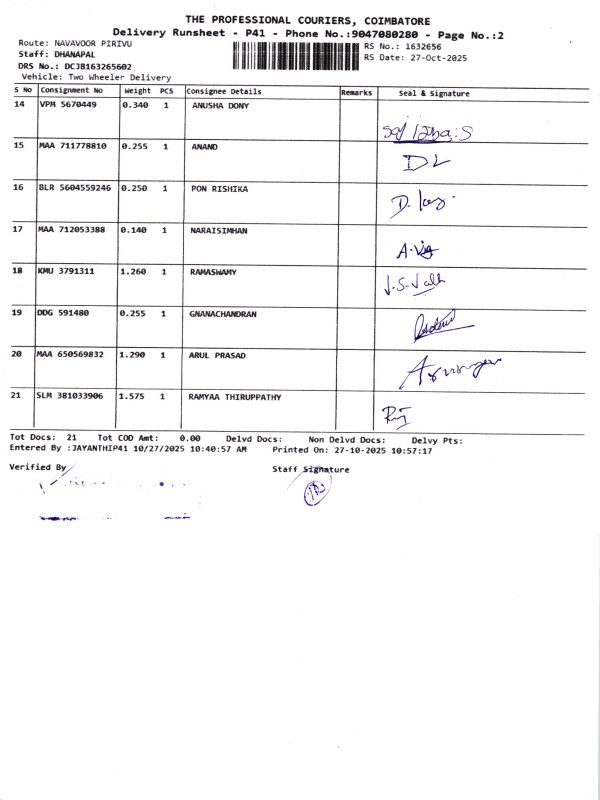 THE PROFESSIONAL COURIERS, COIMBATORE
Delivery Runsheet - P41 - Phone No.:9047080280 - Page No.:2
Route: NAVAVOOR PIRIVU
RS No.: 1632656
Staff: DHANAPAL
RS Date: 27-Oct-2025
DRS No.: DCJB163265602
Vehicle: Two Wheeler Delivery
S No Consignment No Weight PCS Consignee Details Remarks Seal & Signature
14 VPM 5670449 0.340 1 ANUSHA DONY
15 MAA 711778810 0.255 1 ANAND DL
16 BLR 5604559246 0.250 1 PON RISHIKA
17 MAA 712053388 0.140 1 NARAISIMHAN
18 KMU 3791311 1.260 1 RAMASWAMY
19 DDG 591480 0.255 1 GNANACHANDRAN
20 MAA 650569832 1.290 1 ARUL PRASAD
21 SLM 381033906 1.575 1 RAMYAA THIRUPPATHY
Tot Docs: 21 Tot COD Amt: 0.00 Delvd Docs: Non Delvd Docs: Delvy Pts:
Entered By :JAYANTHIP41 10/27/2025 10:40:57 AM Printed On: 27-10-2025 10:57:17
Verified By Staff Signature